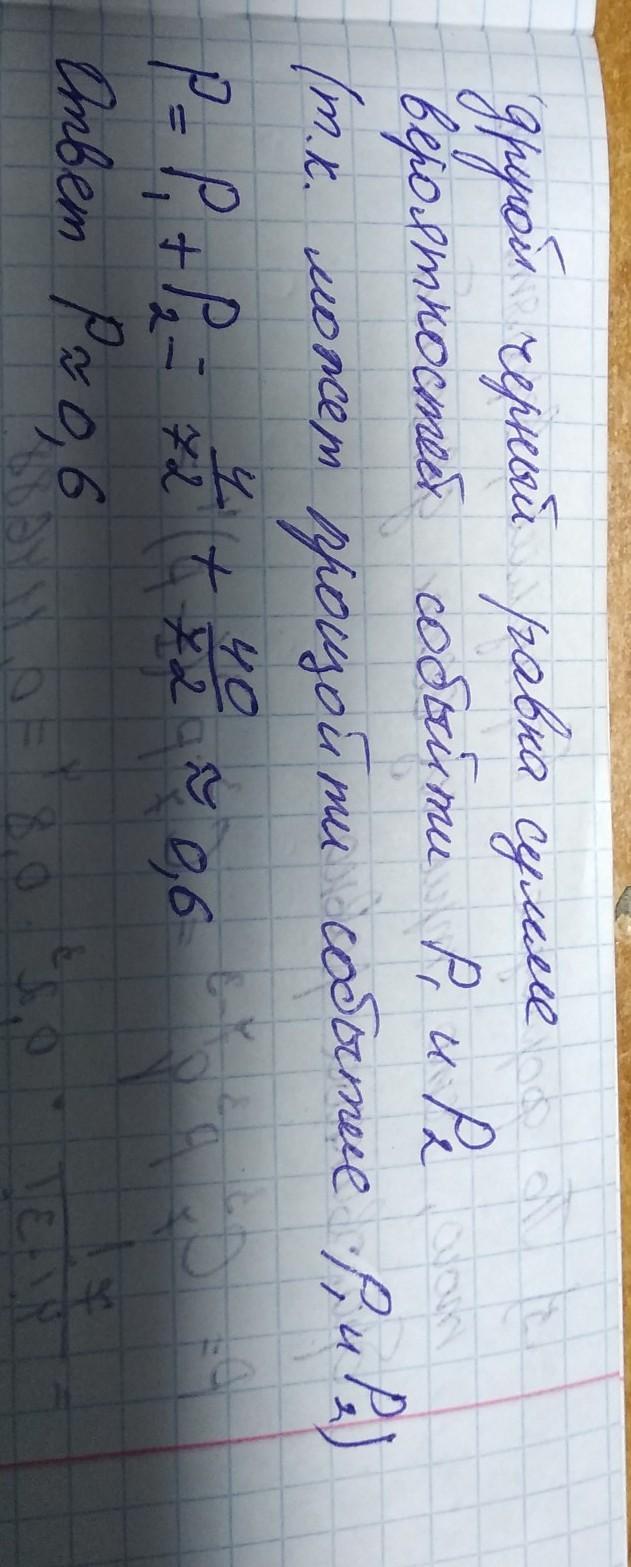 другой черный равна сумме
вероятностей событий P₁ и P₂
(т.к. может произойти событие P₁ и P₂)
P = P₁ + P₂ = 4/72 + 40/72 ≈ 0,6
Ответ P ≈ 0,6